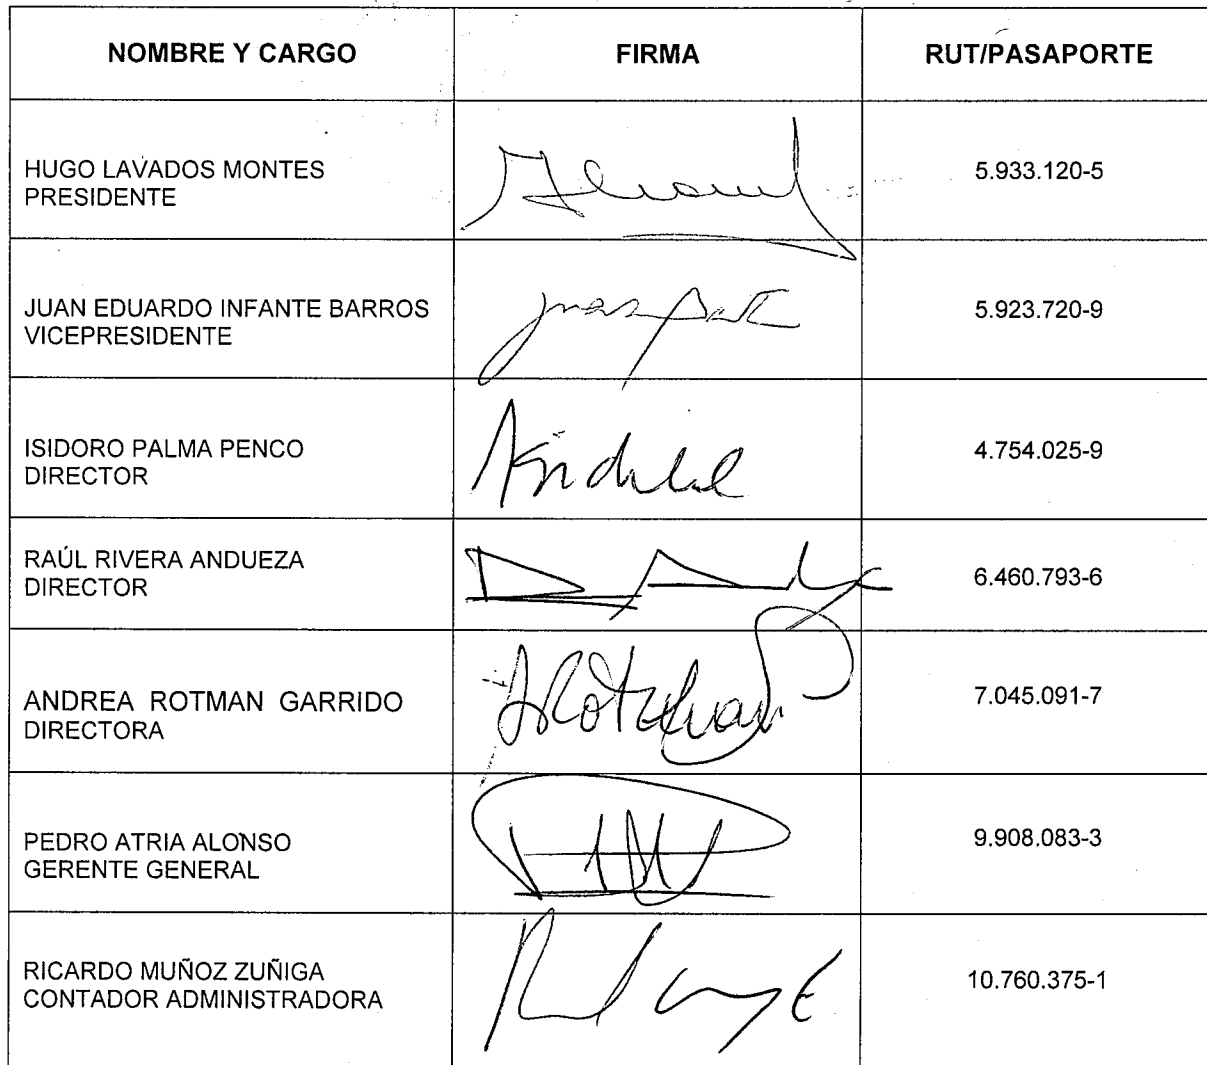 NOMBRE Y CARGO FIRMA RUT/PASAPORTE
HUGO LAVADOS MONTES
PRESIDENTE
5.933.120-5
JUAN EDUARDO INFANTE BARROS
VICEPRESIDENTE
5.923.720-9
ISIDORO PALMA PENCO
DIRECTOR
4.754.025-9
RAÚL RIVERA ANDUEZA
DIRECTOR
6.460.793-6
ANDREA ROTMAN GARRIDO
DIRECTORA
7.045.091-7
PEDRO ATRIA ALONSO
GERENTE GENERAL
9.908.083-3
RICARDO MUÑOZ ZUÑIGA
CONTADOR ADMINISTRADORA
10.760.375-1